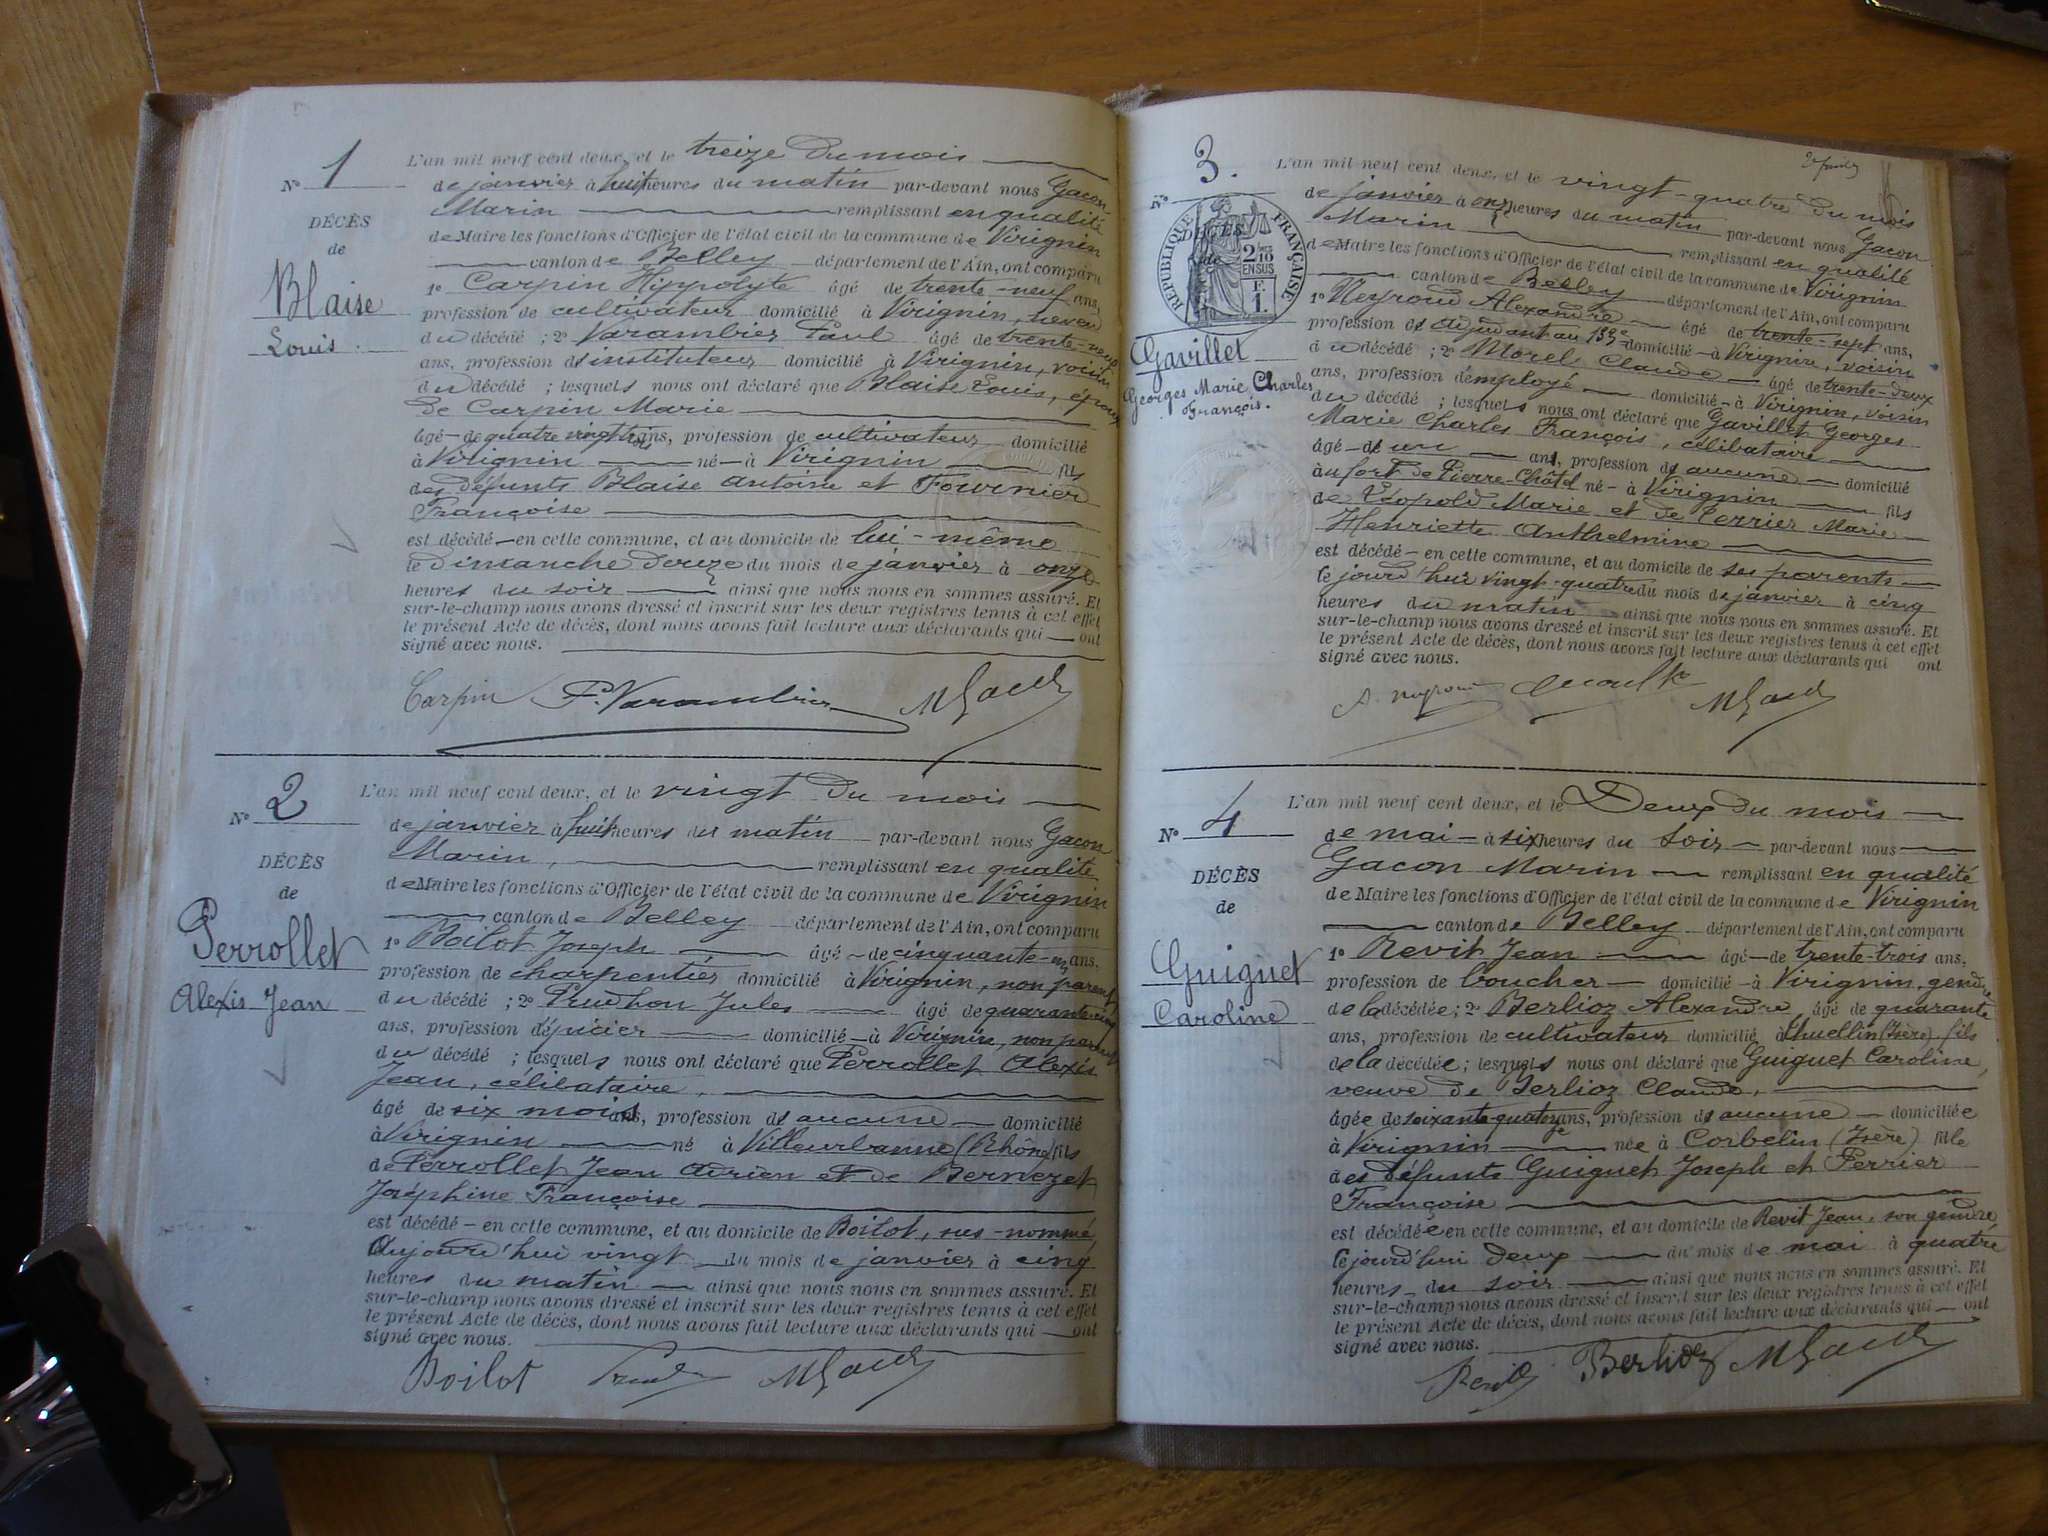 N° 1
DÉCÈS
de
Blaise
Louis
L'an mil neuf cent deux, et le treize du mois
de janvier à huit heures du matin par-devant nous Gacon
Marin remplissant en qualité
de Maire les fonctions d'Officier de l'état civil de la commune de Virignin
canton de Belley département de l'Ain, ont comparu
1° Carpin Hippolyte âgé de trente-neuf ans,
profession de cultivateur domicilié à Virignin, neveu
du décédé ; 2° Varambier Paul âgé de trente-neuf
ans, profession d'instituteur domicilié à Virignin, voisin
du décédé ; lesquels nous ont déclaré que Blaise Louis, époux
de Carpin Marie
âgé de quatre vingt trois ans, profession de cultivateur domicilié
à Virignin né à Virignin fils
des défunts Blaise Antoine et Fournier
Françoise
est décédé en cette commune, et au domicile de lui-même
le dimanche douze du mois de janvier à onze
heures du soir ainsi que nous nous en sommes assuré. Et
sur-le-champ nous avons dressé et inscrit sur les deux registres tenus à cet effet
le présent Acte de décès, dont nous avons fait lecture aux déclarants qui ont
signé avec nous.
Carpin P. Varambier M Gacon
N° 2
DÉCÈS
de
Perrollet
Alexis Jean
L'an mil neuf cent deux, et le vingt du mois
de janvier à huit heures du matin par-devant nous Gacon
Marin, remplissant en qualité
de Maire les fonctions d'Officier de l'état civil de la commune de Virignin
canton de Belley département de l'Ain, ont comparu
1° Boilot Joseph âgé de cinquante-un ans,
profession de charpentier domicilié à Virignin, non parent
du décédé ; 2° Prudhon Jules âgé de quarante-cinq
ans, profession d'épicier domicilié à Virignin, non parent
du décédé ; lesquels nous ont déclaré que Perrollet Alexis
Jean, célibataire,
âgé de six mois ans, profession d'aucune domicilié
à Virignin né à Villeurbanne (Rhône) fils
de Perrollet Jean Adrien et de Bernezet
Joséphine Françoise
est décédé en cette commune, et au domicile de Boilot, sus-nommé,
Aujourd'hui vingt du mois de janvier à cinq
heures du matin ainsi que nous nous en sommes assuré. Et
sur-le-champ nous avons dressé et inscrit sur les deux registres tenus à cet effet
le présent Acte de décès, dont nous avons fait lecture aux déclarants qui ont
signé avec nous.
Boilot M Gacon
N° 3.
DÉCÈS
de
RÉPUBLIQUE FRANÇAISE
2/10
EN SUS
F.
1.
Gavillet
Georges Marie Charles
François.
L'an mil neuf cent deux, et le vingt-quatre du mois
de janvier à onze heures du matin par-devant nous Gacon
Marin remplissant en qualité
de Maire les fonctions d'Officier de l'état civil de la commune de Virignin
canton de Belley département de l'Ain, ont comparu
1° Neyroud Alexandre âgé de trente-sept ans,
profession d'adjudant au 133e domicilié à Virignin, voisin
du décédé ; 2° Morel Claude âgé de trente-deux
ans, profession d'employé domicilié à Virignin, voisin
du décédé ; lesquels nous ont déclaré que Gavillet Georges
Marie Charles François, célibataire
âgé de un ans, profession d'aucune domicilié
au fort de Pierre-Châtel né à Virignin fils
de Léopold Marie et de Perrier Marie
Henriette Anthelmine
est décédé en cette commune, et au domicile de ses parents
le jourd'hui vingt-quatre du mois de janvier à cinq
heures du matin ainsi que nous nous en sommes assuré. Et
sur-le-champ nous avons dressé et inscrit sur les deux registres tenus à cet effet
le présent Acte de décès, dont nous avons fait lecture aux déclarants qui ont
signé avec nous.
A. Neyroud M Gacon
N° 4
DÉCÈS
de
Guiguet
Caroline
L'an mil neuf cent deux, et le Deux du mois
de mai à six heures du soir par-devant nous
Gacon Marin remplissant en qualité
de Maire les fonctions d'Officier de l'état civil de la commune de Virignin
canton de Belley département de l'Ain, ont comparu
1° Revit Jean âgé de trente-trois ans,
profession de boucher domicilié à Virignin, gendre
de la décédée ; 2° Berlioz Alexandre âgé de quarante
ans, profession de cultivateur domicilié à (Isère) fils
de la décédée ; lesquels nous ont déclaré que Guiguet Caroline,
veuve de Berlioz Claude,
âgée de soixante-quatorze ans, profession d'aucune domiciliée
à Virignin née à Corbelin (Isère) fille
des défunts Guiguet Joseph et Perrier
Françoise
est décédée en cette commune, et au domicile de Revit Jean, son gendre
le jourd'hui deux du mois de mai à quatre
heures du soir ainsi que nous nous en sommes assuré. Et
sur-le-champ nous avons dressé et inscrit sur les deux registres tenus à cet effet
le présent Acte de décès, dont nous avons fait lecture aux déclarants qui ont
signé avec nous.
Revit Berlioz M Gacon